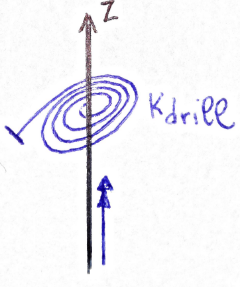 Z
Kdrill